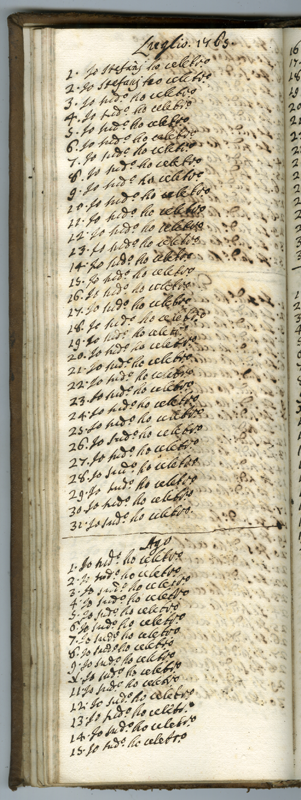 Luglio 1763.
1. Io Stefanj ho celebro
2. Io Stefanj ho celebro
3. Io sudo ho celebro
4. Io sudo ho celebro
5. Io sudo ho celebro
6. Io sudo ho celebro
7. Io sudo ho celebro
8. Io sudo ho celebro
9. Io sudo ho celebro
10. Io sudo ho celebro
11. Io sudo ho celebro
12. Io sudo ho celebro
13. Io sudo ho celebro
14. Io sudo ho celebro
15. Io sudo ho celebro
16. Io sudo ho celebro
17. Io sudo ho celebro
18. Io sudo ho celebro
19. Io sudo ho celebro
20. Io sudo ho celebro
21. Io sudo ho celebro
22. Io sudo ho celebro
23. Io sudo ho celebro
24. Io sudo ho celebro
25. Io sudo ho celebro
26. Io sudo ho celebro
27. Io sudo ho celebro
28. Io sudo ho celebro
29. Io sudo ho celebro
30. Io sudo ho celebro
31. Io sudo ho celebro
Ago
1. Io sudo ho celebro
2. Io sudo ho celebro
3. Io sudo ho celebro
4. Io sudo ho celebro
5. Io sudo ho celebro
6. Io sudo ho celebro
7. Io sudo ho celebro
8. Io sudo ho celebro
9. Io sudo ho celebro
Io sudo ho celebro
11. Io sudo ho celebro
12. Io sudo ho celebro
13. Io sudo ho celebro
14. Io sudo ho celebro
15. Io sudo ho celebro